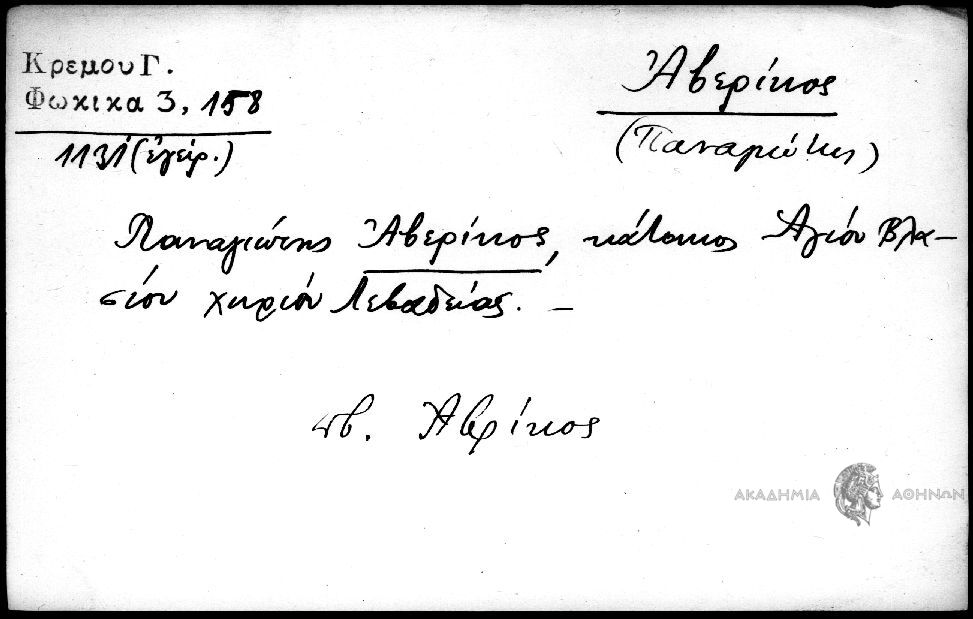 Κρεμου Γ.
Φωκικα 3, 158
1131 (ἐγείρ.)
Ἀβερίκος
(Παναγιώτης)
Παναγιώτης Ἀβερίκος, κάτοικος Ἁγίου Βλα-
σίου χωρίου Λεβαδείας. —
πβ. Ἀβρίκος
ΑΚΑΔΗΜΙΑ ΑΘΗΝΩΝ